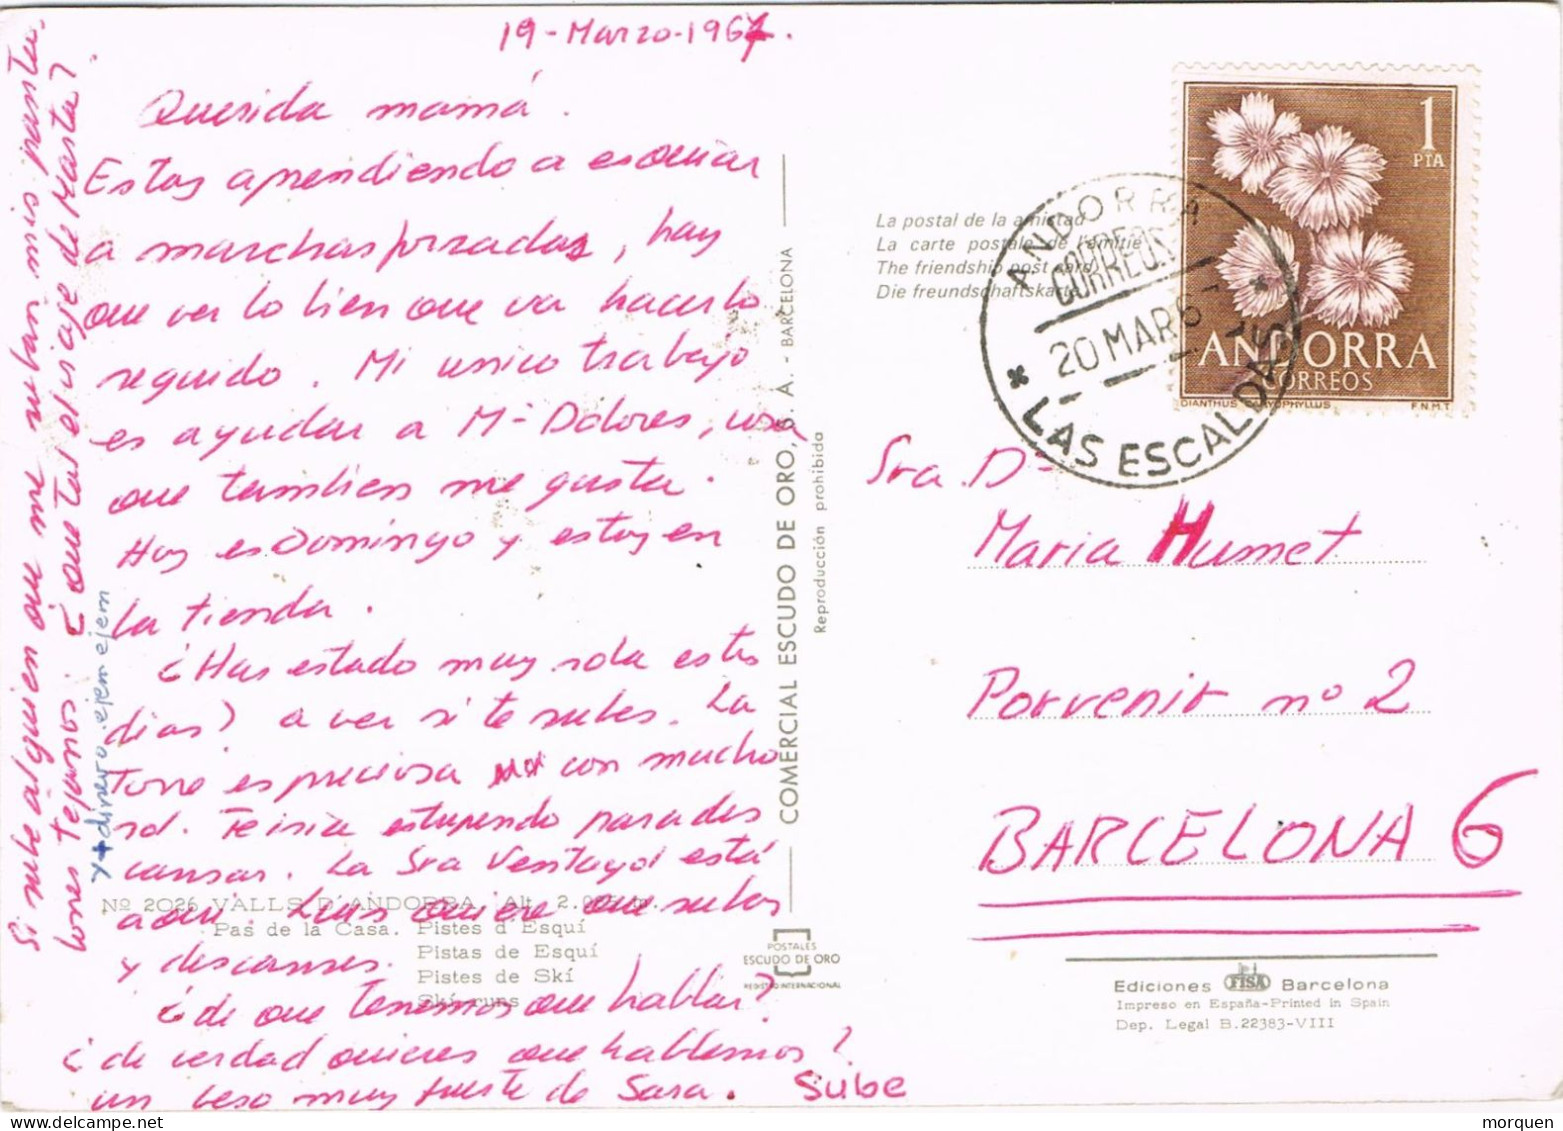 19-Marzo-1967.
Querida mamá.
Estoy aprendiendo a esquiar
a marchas forzadas, hay
que ver lo bien que va hacerlo
seguido. Mi unico trabajo
es ayudar a Mª Dolores, cosa
que tambien me gusta.
Hoy es Domingo y estoy en
la tienda.
¿Has estado muy sola estos
dias? a ver si te subes. La
Torre es preciosa con mucho
sol. Te iria estupendo para des
cansar. La Sra Ventayol está
aqui. Luis quiere que subas
y descanses.
¿de que tenemos que hablar?
¿de verdad quieres que hablemos?
un beso muy fuerte de Sara. Sube
Si sube alguien que me suban mis panta
lones tejanos. ¿que tal el viaje de Marta?
y + dinero ejem ejem
Nº 2026 VALLS D'ANDORRA. Alt. m.
Pas de la Casa. Pistes d'Esquí
Pistas de Esquí
Pistes de Skí
Skí-runs
COMERCIAL ESCUDO DE ORO, S. A. - BARCELONA
Reproducción prohibida
POSTALES
ESCUDO DE ORO
REGISTRO INTERNACIONAL
La postal de la amistad
La carte postale de l'amitié
The friendship post card
Die freundschaftskarte
ANDORRA
CORREOS
20 MAR 67
LAS ESCALDAS
1
PTA
ANDORRA
CORREOS
DIANTHUS CARYOPHYLLUS F.N.M.T.
Sra Dª
Maria Humet
Porvenir nº 2
BARCELONA 6
Ediciones FISA Barcelona
Impreso en España-Printed in Spain
Dep. Legal B.22383-VIII
morquen